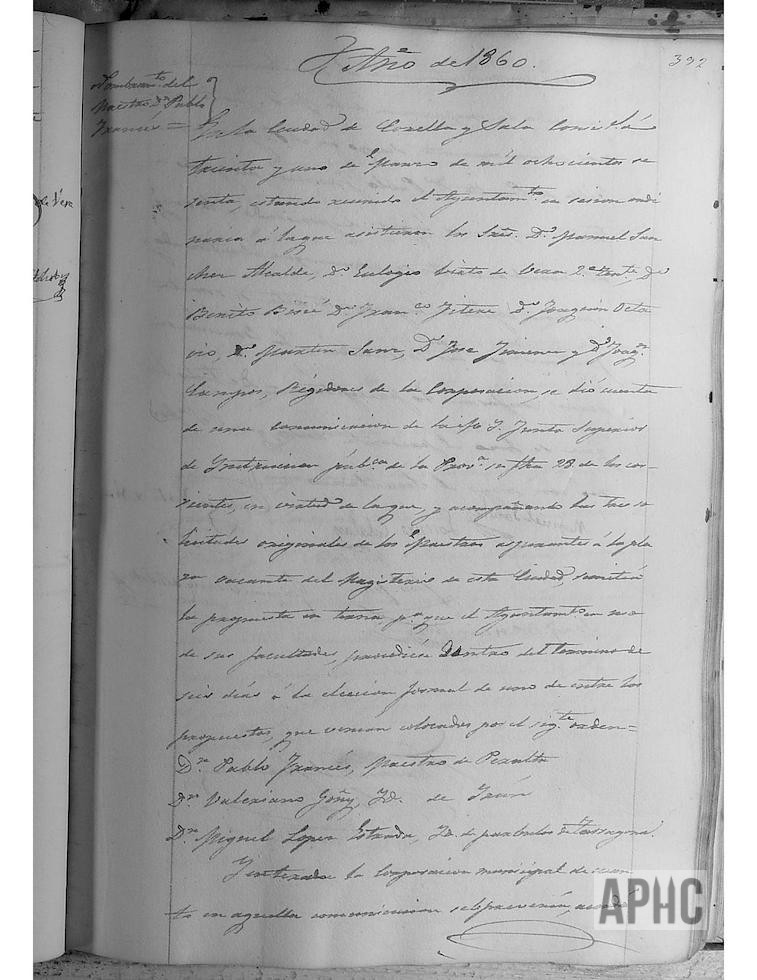 Año de 1860.
392
Nombram.to del
Maestro D.n Pablo
Francés =
de Vera
En la Ciudad de Corella y Sala Consist.l á
treinta y uno de Marzo de mil ochocientos se
senta, estando reunido el Ayuntam.to en sesion ordi
naria á la que asistieron los Sres. D.n Manuel San
chez Alcalde, D.n Eulogio de Vera 2.º tente, D.n
Benito D.n Fran.co D.n Joaquin Octa
vio, D.n Martin Sanz, D.n Jose Jimenez y D.n Joaq.n
Campos, Regidores de la Corporacion, se dió cuenta
de una comunicacion de la Junta Superior
de Instruccion púb.ca de la Prov.a su fha 28 de los cor-
rientes, en virtud de la que, y acompañando las tres so
licitudes originales de los Maestros aspirantes á la pla
za vacante del Magisterio de esta Ciudad, remitia
la propuesta en terna, p.a que el Ayuntam.to en uso
de sus facultades, procediera dentro del termino de
seis dias á la eleccion formal de uno de entre los
propuestos, que venian colocados por el sig.te orden=
D.n Pablo Francés, Maestro de Peralta
D.n Valeriano Goñy, Id. de Irún
D.n Miguel Lopez Estrada, Id. de parbulos de Tarragona.
Y enterada la Corporacion municipal de cuan
to en aquella comunicacion se le prevenia, acordó
APHC